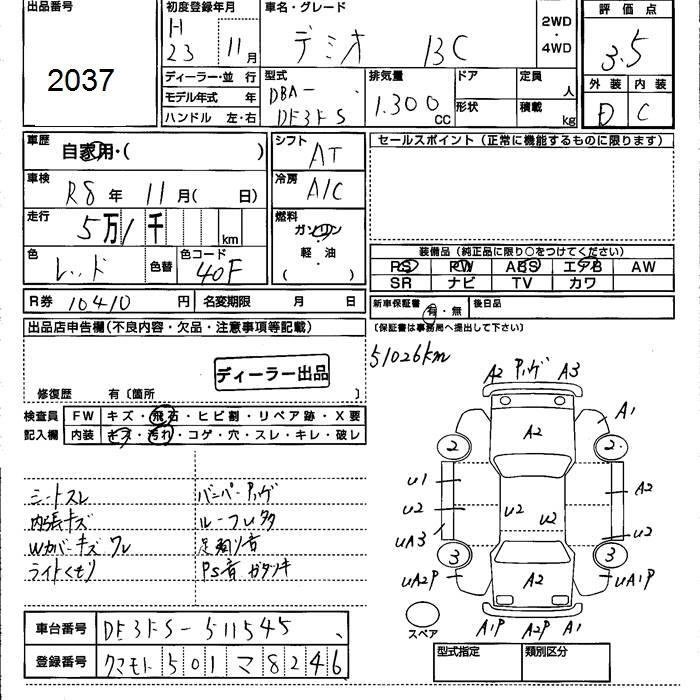 出品番号
2037
初度登録年月
H
23 11月
車名・グレード
デミオ 13C
2WD
・
4WD
評価点
3.5
外装 内装
D C
ディーラー・並 行
モデル年式 年
ハンドル 左・右
型式
DBA-
DE3FS
排気量
1.300 CC
ドア
形状
定員 人
積載 kg
車歴
自家用・( )
車検
R8年 11月( 日)
走行
5万1千 km
色
レッド
色替
色コード
40F
シフト
AT
冷房
A/C
燃料
ガソリン
・
軽・油
( )
セールスポイント(正常に機能するものに限ります)
装備品(純正品に限り○をつけてください)
PS PW ABS エアB AW
SR ナビ TV カワ
R券 10410 円 名変期限 月 日
新車保証書 有・無 後日品
(保証書は事務局へ提出して下さい)
出品店申告欄(不良内容・欠品・注意事項等記載)
ディーラー出品
修復歴 有〔箇所 〕
51026km
検査員 FW キズ・飛石・ヒビ割・リペア跡・X要
記入欄 内装 キズ・汚れ・コゲ・穴・スレ・キレ・破レ
シートスレ バンパーアッゲ
内張キズ ルーフレタタ
Wカバーキズ ワレ 足廻り音
ライトくもり PS音 ガタツキ
A2 アッゲ A3
A1
A2
2 2
U1
A2
U2 U2 U2
UA3 U2
3 3
UA2P A2 UA1P
スペア
A1P A2P A1
車台番号 DE3FS-511545
登録番号 クマモト 501 マ 8246
型式指定 類別区分